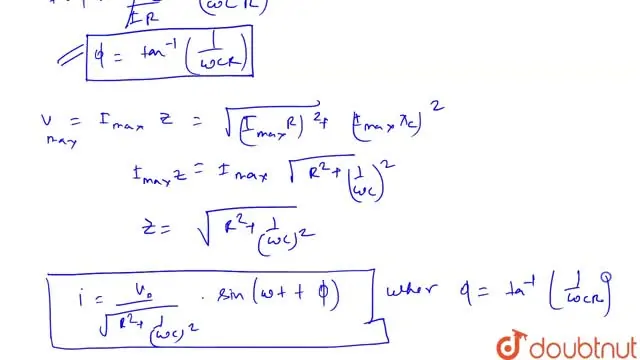 IR (ωCR)
φ = tan⁻¹ (1/ωCR)
V max = I max Z = √(I max R)² + (I max Xc)²
I max Z = I max √R² + (1/ωC)²
Z = √R² + 1/(ωC)²
i = V₀/√R² + 1/(ωC)² . sin (ωt + φ) wher φ = ta⁻¹ (1/ωCR)
doubtnut